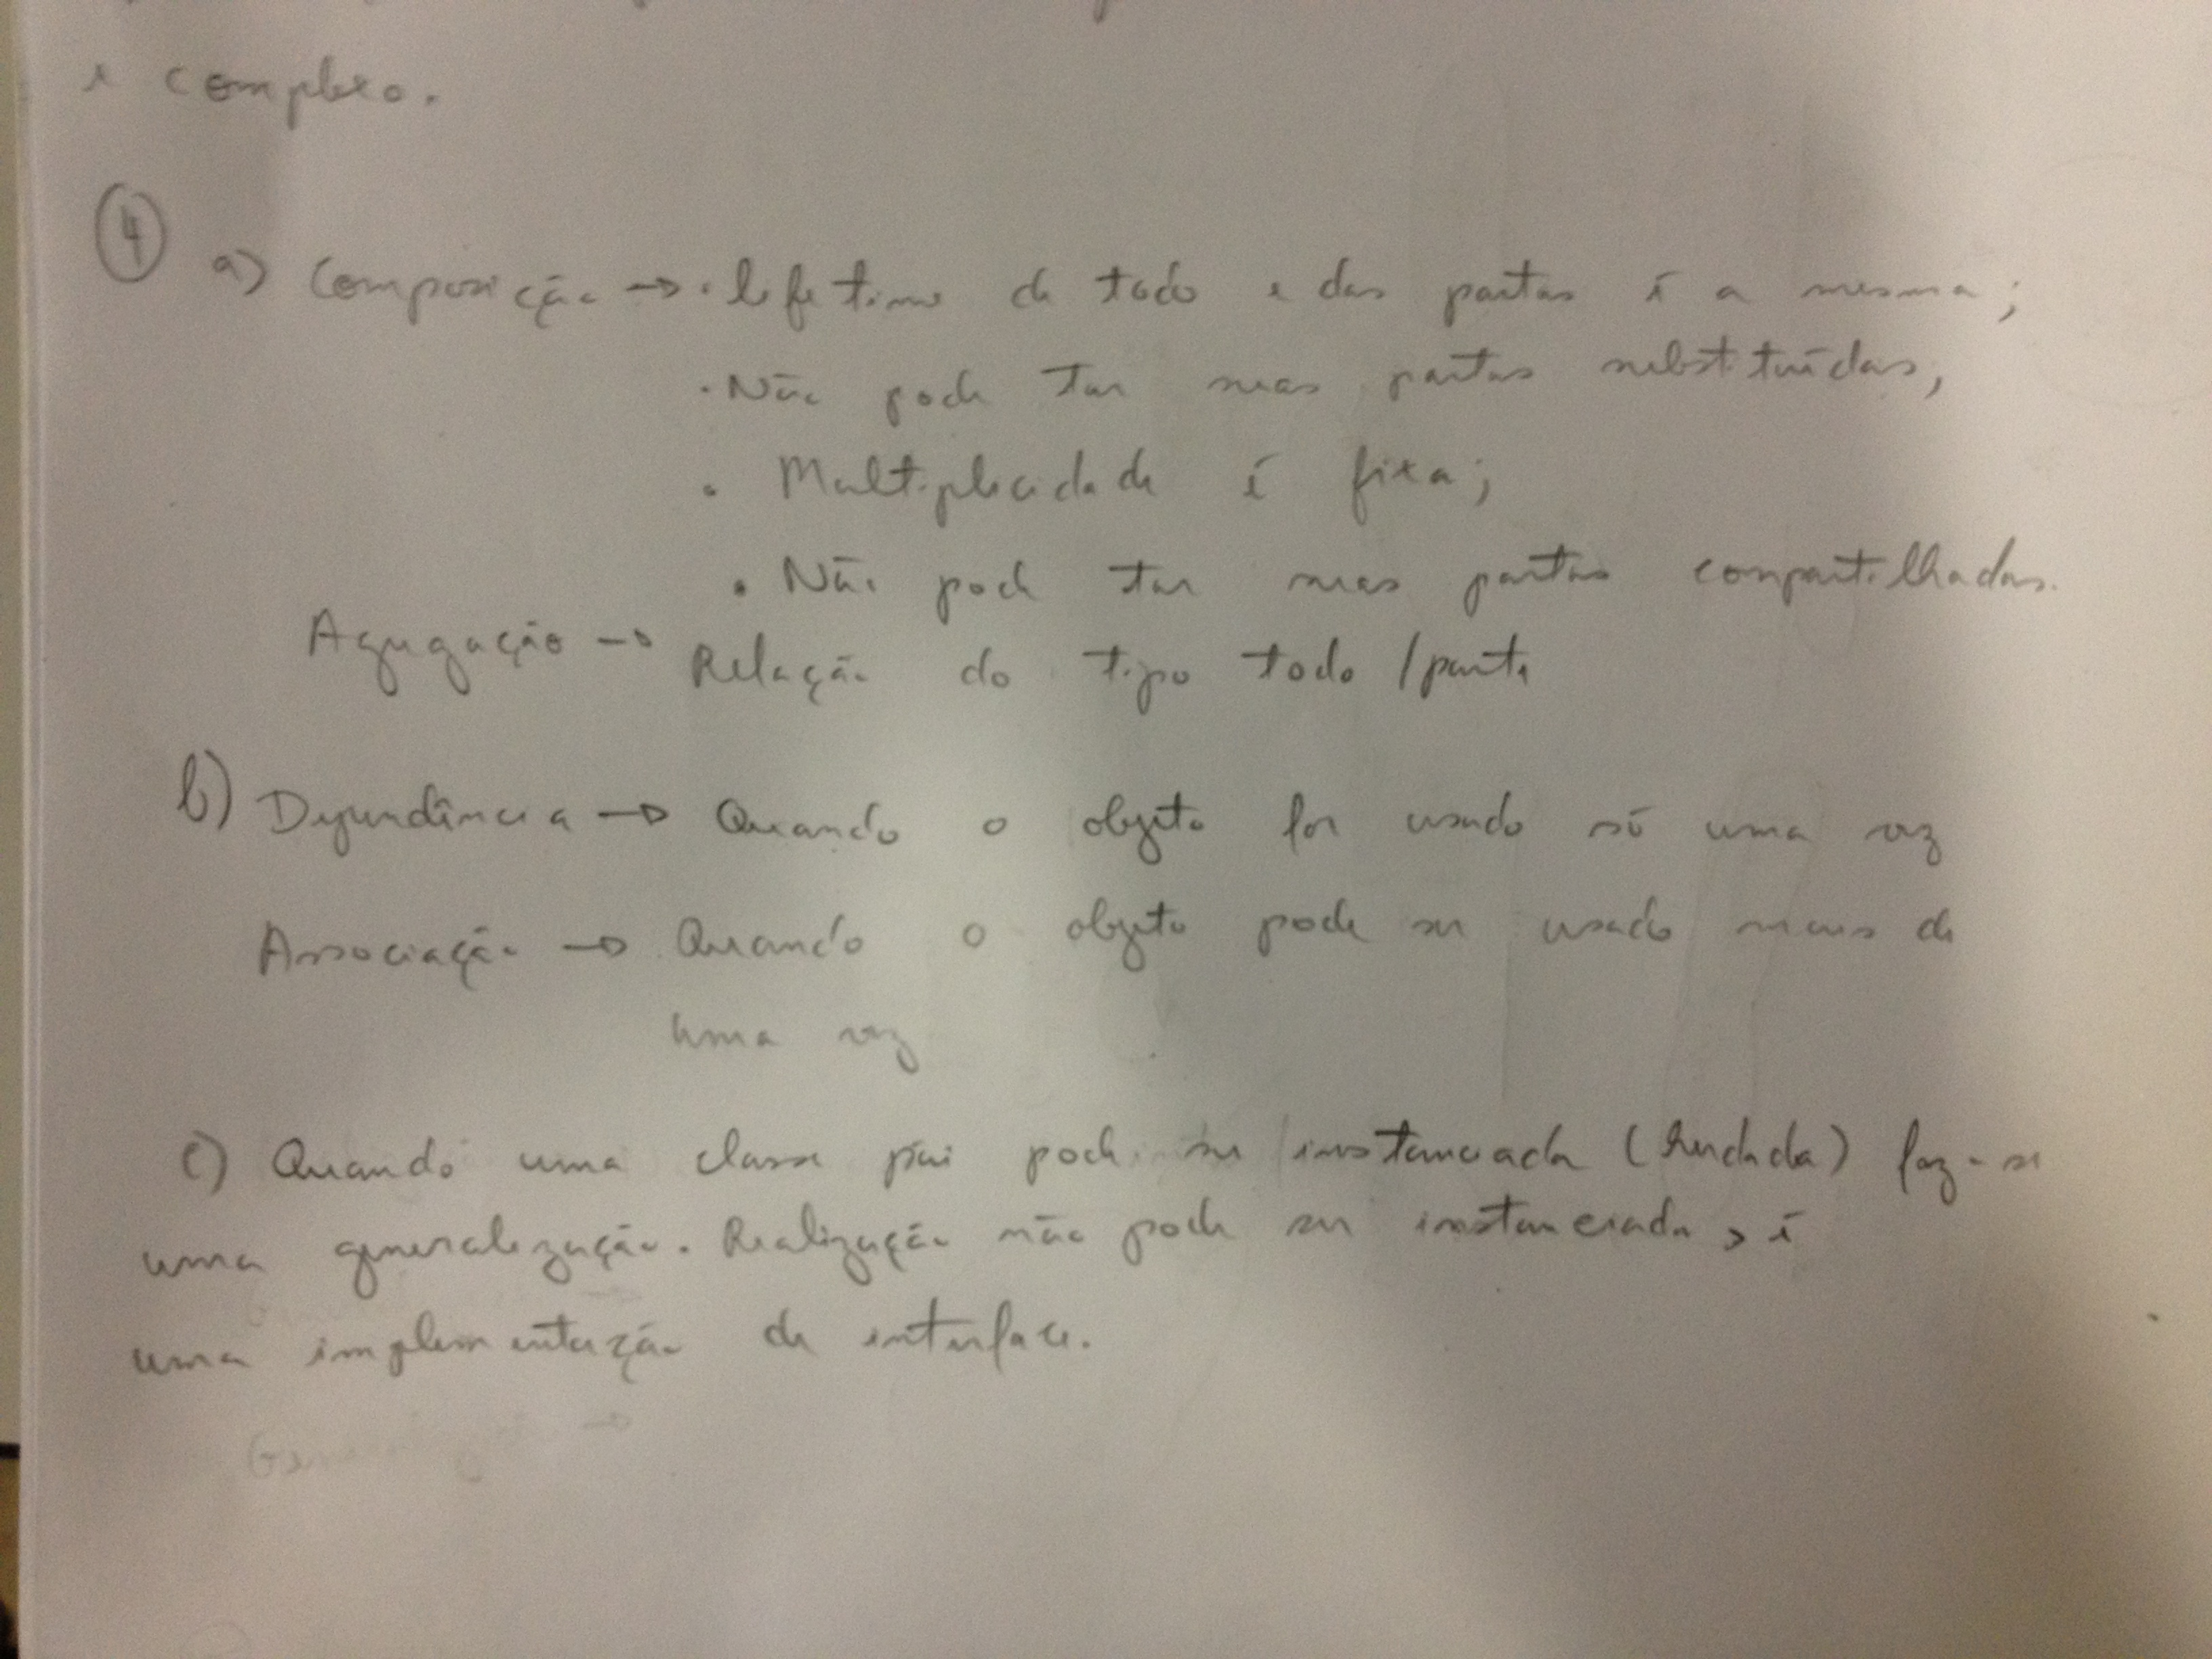 e complexo.
④ a) Composição → • lifetime do todo e das partes é a mesma;
• Não pode ter suas partes substituídas,
• Multiplicidade é fixa;
• Não pode ter suas partes compartilhadas.
Agregação → Relação do tipo todo/parte
b) Dependência → Quando o objeto for usado só uma vez
Associação → Quando o objeto pode ser usado mais de
uma vez
c) Quando uma classe pai pode ser instanciada (herdada) faz-se
uma generalização. Realização não pode ser instanciada, é
uma implementação de interface.